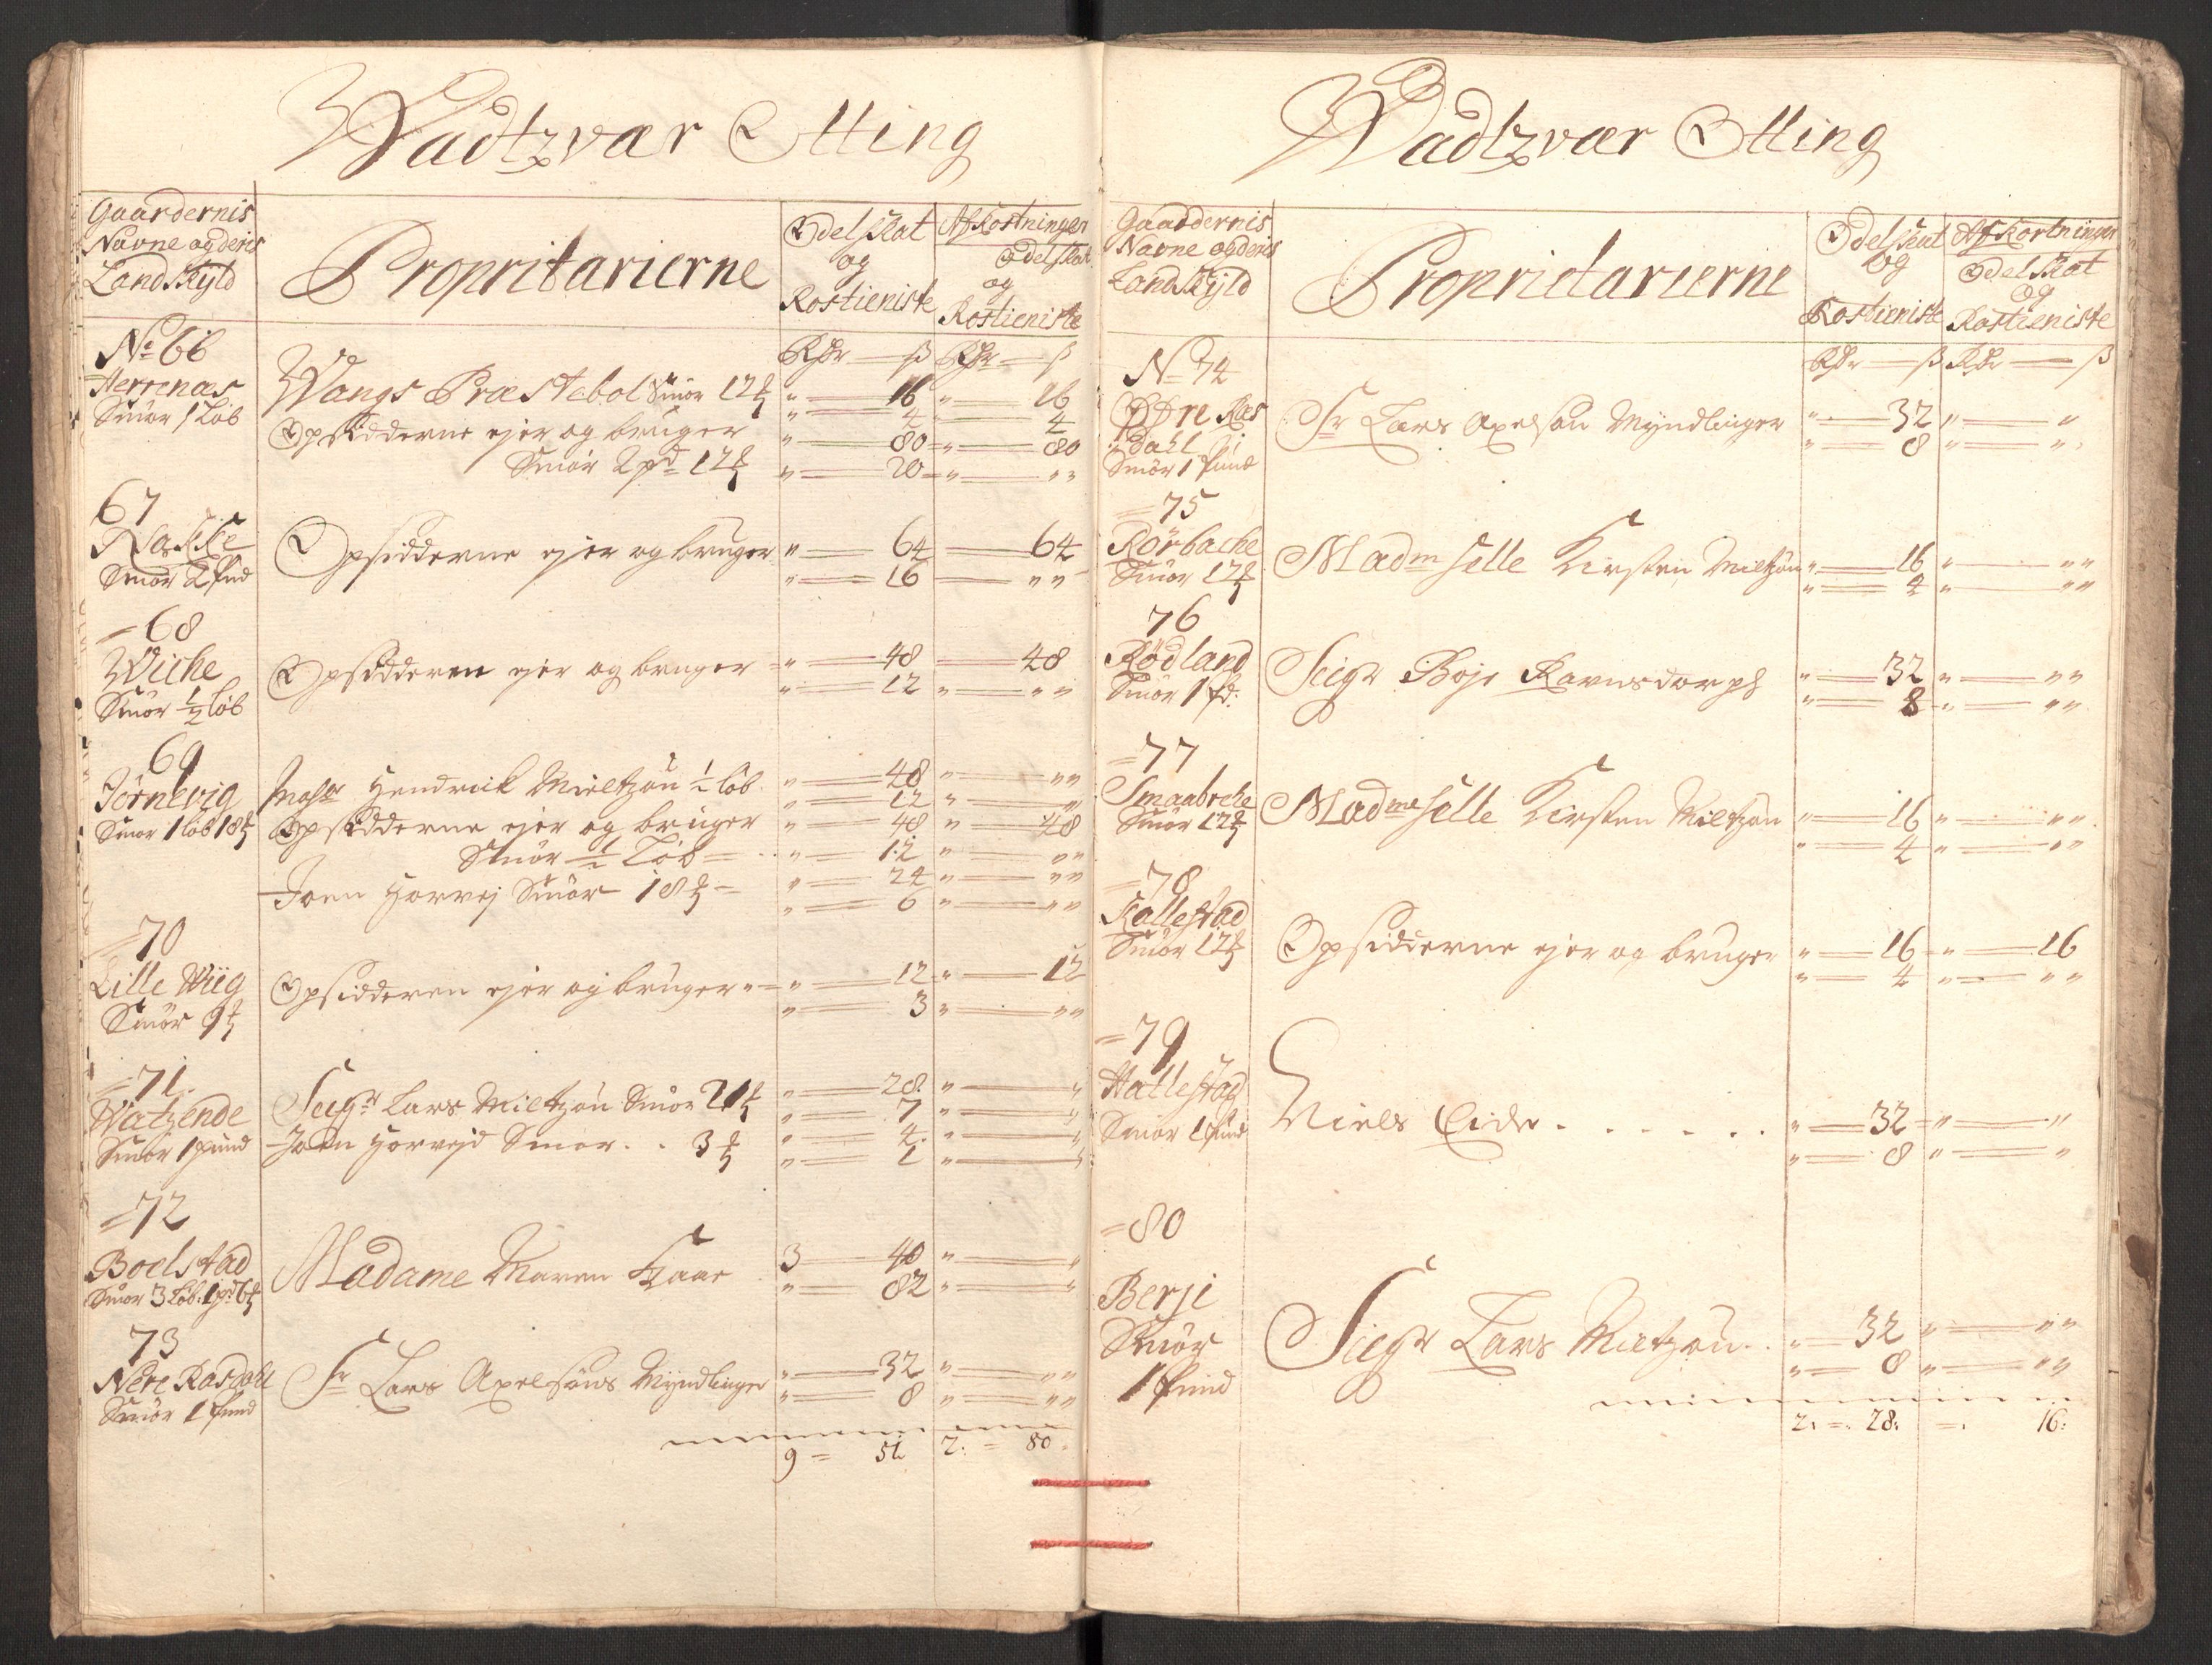 Wadtzvær Otting
Gaardernis
Navne og deris
Landskyld
Propritarierne
Odelskat
og
Rostieniste
Afkortninger
Odelskat
og
Rostieniste
Rdr — ß Rdr — ß
No 66
Herrenæs
Smör 1 Löb
Wangs Præstebol Smör 12 ℔ " — 16 " — 16
" — 4 " — 4
Opsidderne ejer og bruger " — 80 " — 80
Smör 2 pd 12 ℔ " — 20 " — " "
67
Rasike
Smör 2 Pud
Opsidderne ejer og bruger " — 64 — 64
" — 16 — " "
68
Wiche
Smör ½ löb
Opsidderen ejer og bruger " — 48 — 48
" — 12 " — " "
69
Jörnevig
Smör 1 löb 18 ℔
Hendrick Mieltzön ½ löb " — 48 " — " "
" — 12 " — "
Opsidderne ejer og bruger " — 48 " — 48
Smör ½ Löb " — 12 " — " "
Joen Horvej Smör 18 ℔ " — 24 " — " "
" — 6 " — " "
70
Lille Wiig
Smör 9 ℔
Opsidderen ejer og bruger " — 12 " — 12
" — 3 " — " "
71
Watzende
Smör 1 pund
Seigr Lars Mieltzön Smör 21 ℔ " — 28 " — "
" — 7 " — "
Joen Horvejd Smör . . 3 ℔ " — 4 " — "
" — 1 " — "
72
Boelstad
Smör 3 Löb: 1 pd 6 ℔
Madame Maren Kaae 3 — 40 " — "
" — 82 " — "
73
Nere Rasdahl
Smör 1 Pund
Sr Lars Axelsöns Myndlinger " — 32 " — " "
" — 8 " — " "
9 = 51 2. = 80.
Wadtzvær Otting
Gaardernis
Navne og deris
Landskyld
Proprietarierne
Odelskat
og
Rostieniste
Afkortninger
Odelskat
og
Rostieniste
Rdr — ß Rdr — ß
No 74
Øfre Ras
Dahl
Smör 1 Pund
Sr Lars Axelsön Myndlinger " — 32 " — "
" — 8 " — "
75
Rörbache
Smör 12 ℔
Madmselle Kirsten Mieltzön " — 16 " — " "
" — 4 " — " "
76
Rödland
Smör 1 pd:
Seigr Boje Ravnsdorph " — 32 " — " "
" — 8 " — " "
77
Smaabreke
Smör 12 ℔
Madmeselle Kirsten Mieltzön " — 16 " — " "
" — 4 " — " "
78
Kallestad
Smör 12 ℔
Opsidderne ejer og bruger " — 16 " — 16
" — 4 " — " "
79
Hallestad
Smör 1 Pund
Niels Eide . . . . . . " — 32 " — "
" — 8 " — "
80
Berje
Smör
1 Pund
Siegr Lars Mieltzön . . " — 32 " — " "
" — 8 " — " "
2. = 28: = . 16: